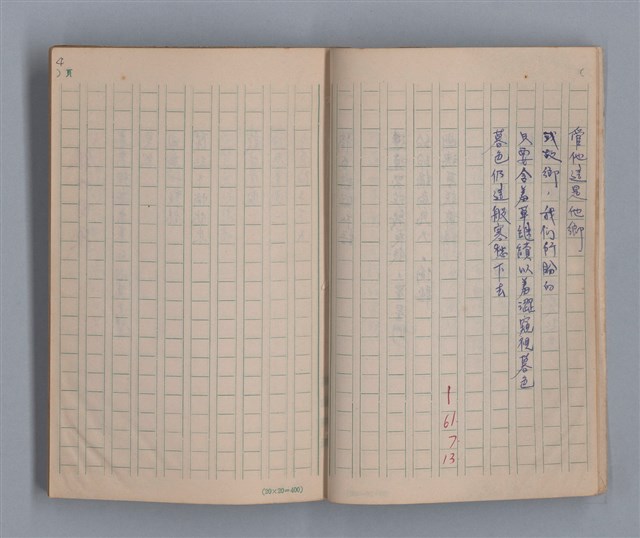 管他這是他鄉、
或故鄉,我們所盼的
只要含羞草繼續以羞澀窺視暮色
暮色仍這般寒愁下去
61.
7.
13
4
頁
(20×20=400)